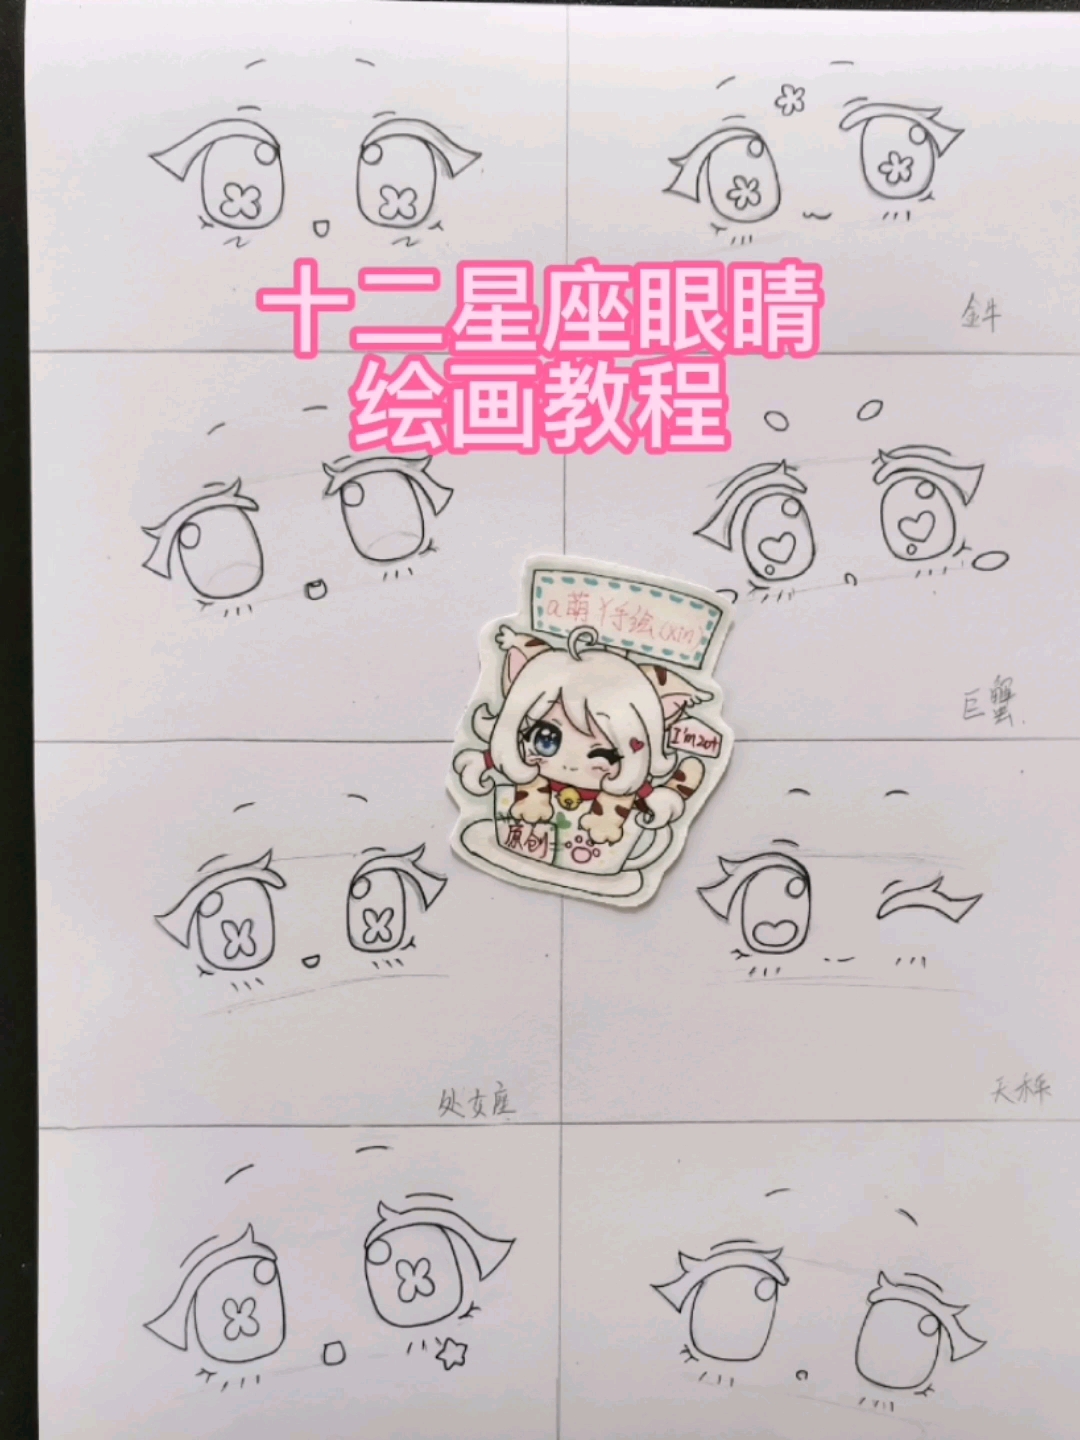 十二星座眼睛
绘画教程
金牛
a萌丫手绘(xin)
巨蟹
I'm 201
原创
处女座
天秤